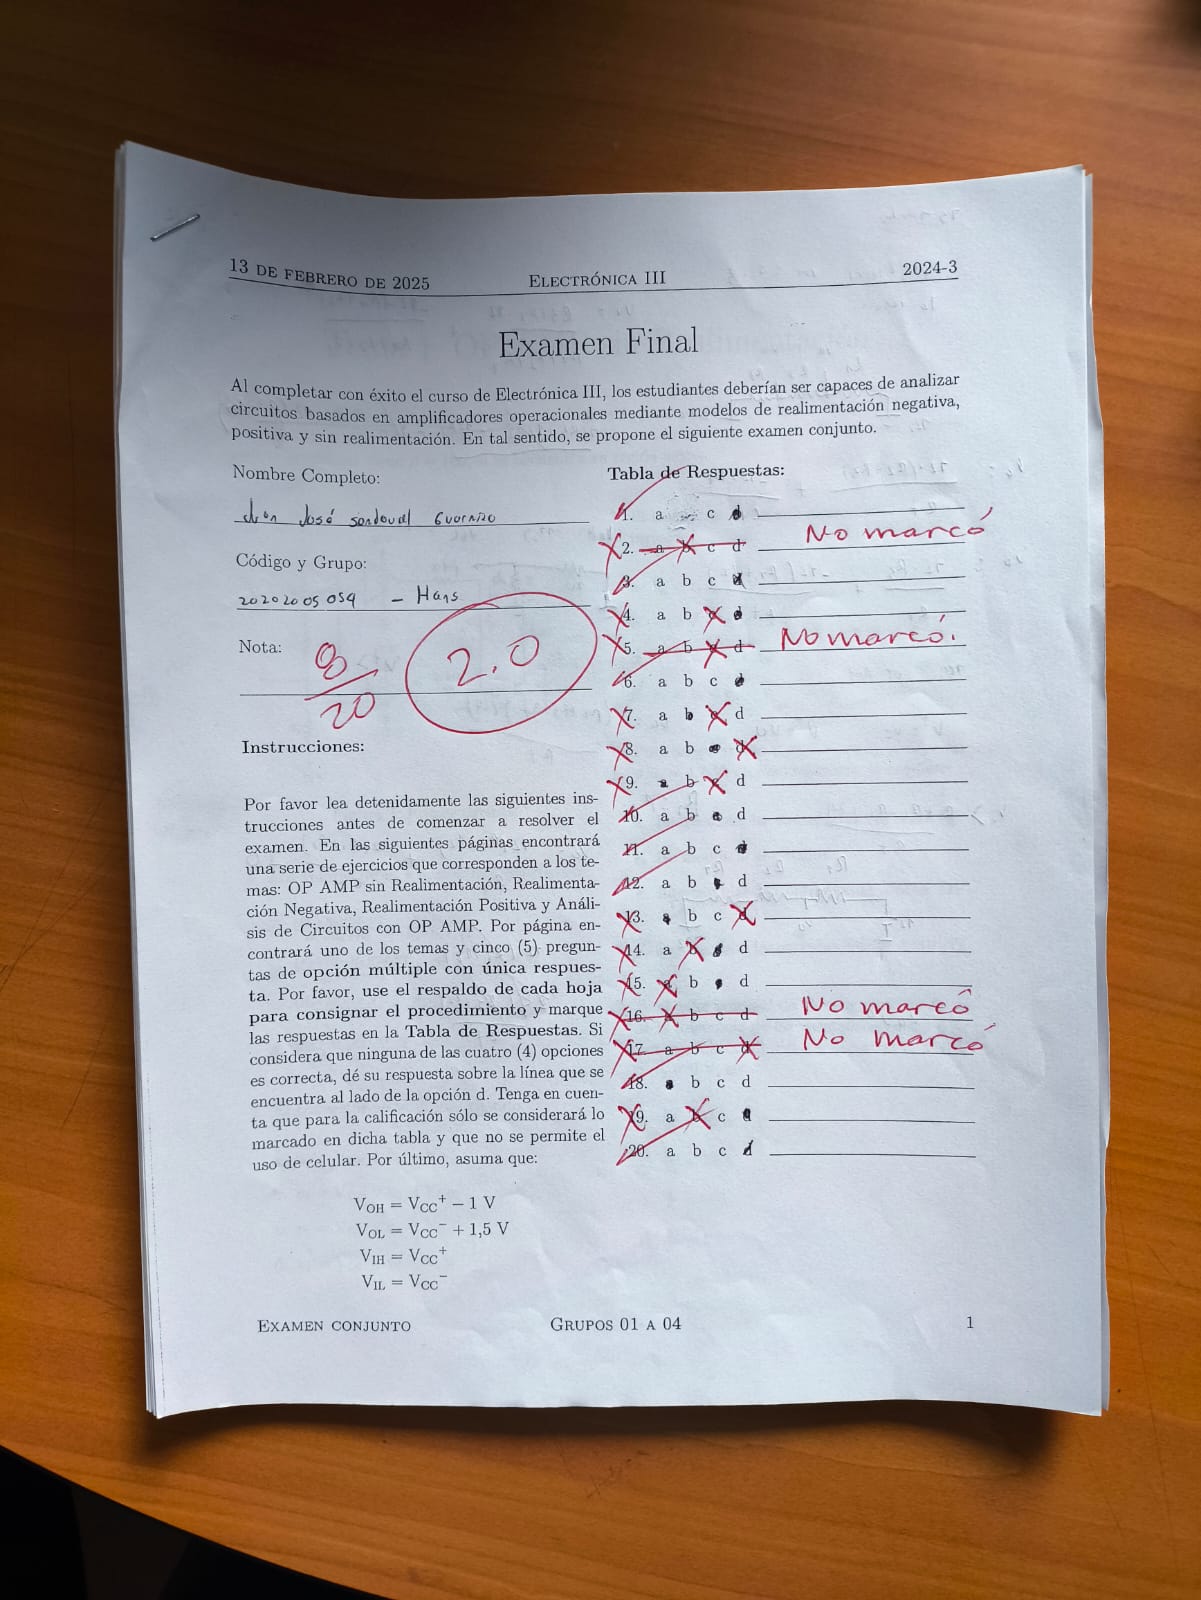 13 DE FEBRERO DE 2025 ELECTRÓNICA III 2024-3
Examen Final
Al completar con éxito el curso de Electrónica III, los estudiantes deberían ser capaces de analizar
circuitos basados en amplificadores operacionales mediante modelos de realimentación negativa,
positiva y sin realimentación. En tal sentido, se propone el siguiente examen conjunto.
Nombre Completo:
José Sandoval
Código y Grupo:
20202005059 - Hans
Nota:
8/20 2.0
Instrucciones:
Por favor lea detenidamente las siguientes ins-
trucciones antes de comenzar a resolver el
examen. En las siguientes páginas encontrará
una serie de ejercicios que corresponden a los te-
mas: OP AMP sin Realimentación, Realimenta-
ción Negativa, Realimentación Positiva y Análi-
sis de Circuitos con OP AMP. Por página en-
contrará uno de los temas y cinco (5) pregun-
tas de opción múltiple con única respues-
ta. Por favor, use el respaldo de cada hoja
para consignar el procedimiento y marque
las respuestas en la Tabla de Respuestas. Si
considera que ninguna de las cuatro (4) opciones
es correcta, dé su respuesta sobre la línea que se
encuentra al lado de la opción d. Tenga en cuen-
ta que para la calificación sólo se considerará lo
marcado en dicha tabla y que no se permite el
uso de celular. Por último, asuma que:
VOH = VCC+ − 1 V
VOL = VCC− + 1,5 V
VIH = VCC+
VIL = VCC−
Tabla de Respuestas:
1. a c d
2. a b c d No marcó
3. a b c d
4. a b c d
5. a b c d No marcó.
6. a b c d
7. a b c d
8. a b c d
9. a b c d
10. a b c d
11. a b c d
12. a b c d
13. a b c d
14. a b c d
15. a b c d
16. a b c d No marcó
17. a b c d No marcó
18. a b c d
19. a b c d
20. a b c d
EXAMEN CONJUNTO GRUPOS 01 A 04 1